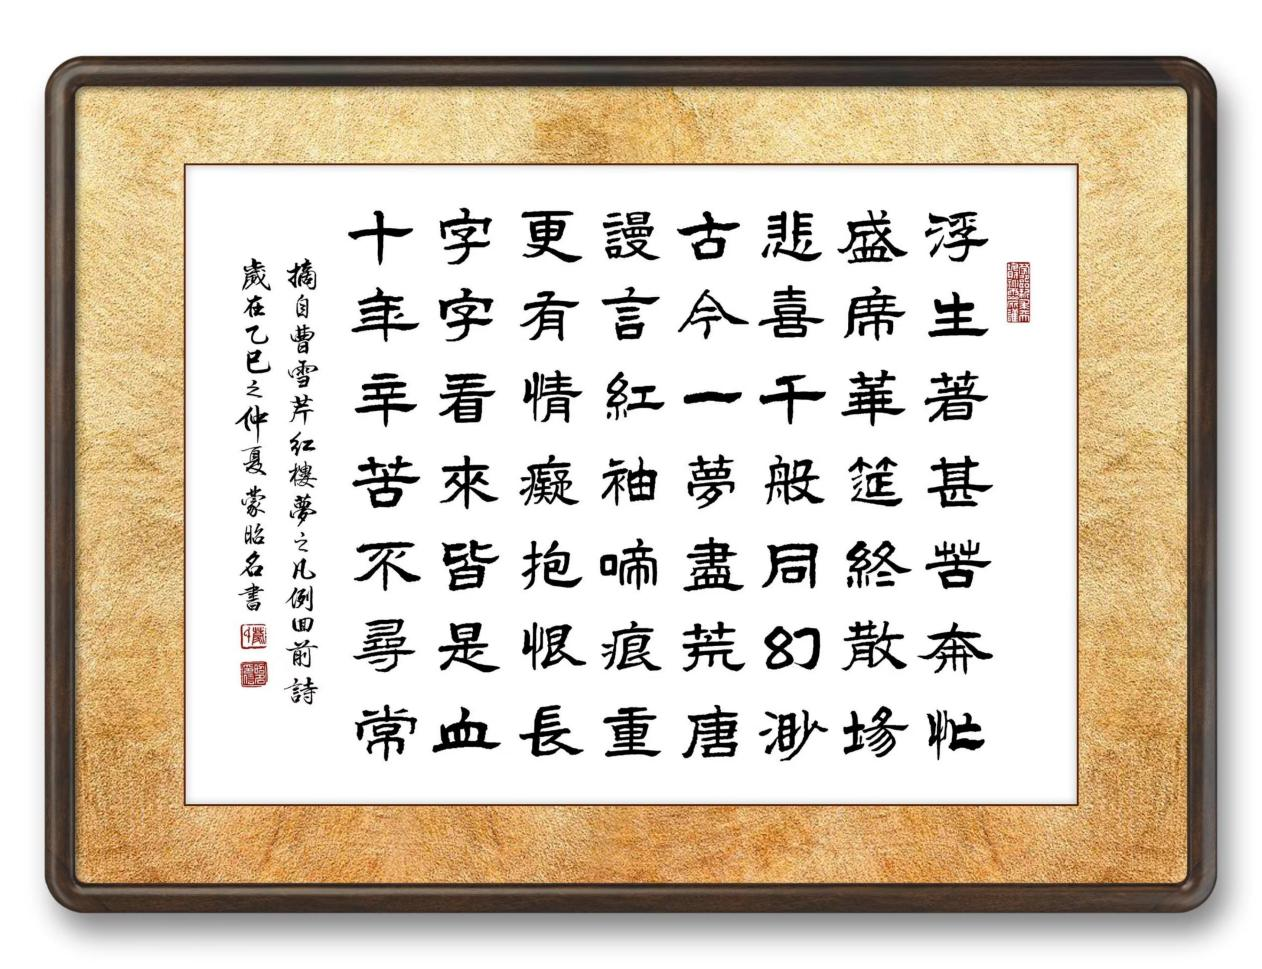 浮生著甚苦奔忙
盛席華筵終散場
悲喜千般同幻渺
古今一夢盡荒唐
謾言紅袖啼痕重
更有情癡抱恨長
字字看來皆是血
十年辛苦不尋常
摘自曹雪芹紅樓夢之凡例回前詩
歲在乙巳之仲夏蒙昭名書